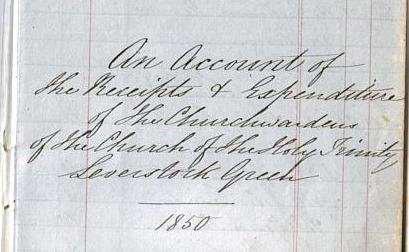 An Account of
the Receipts & Expenditure
of the Churchwardens
of the Church of the Holy Trinity
Leverstock Green
1850